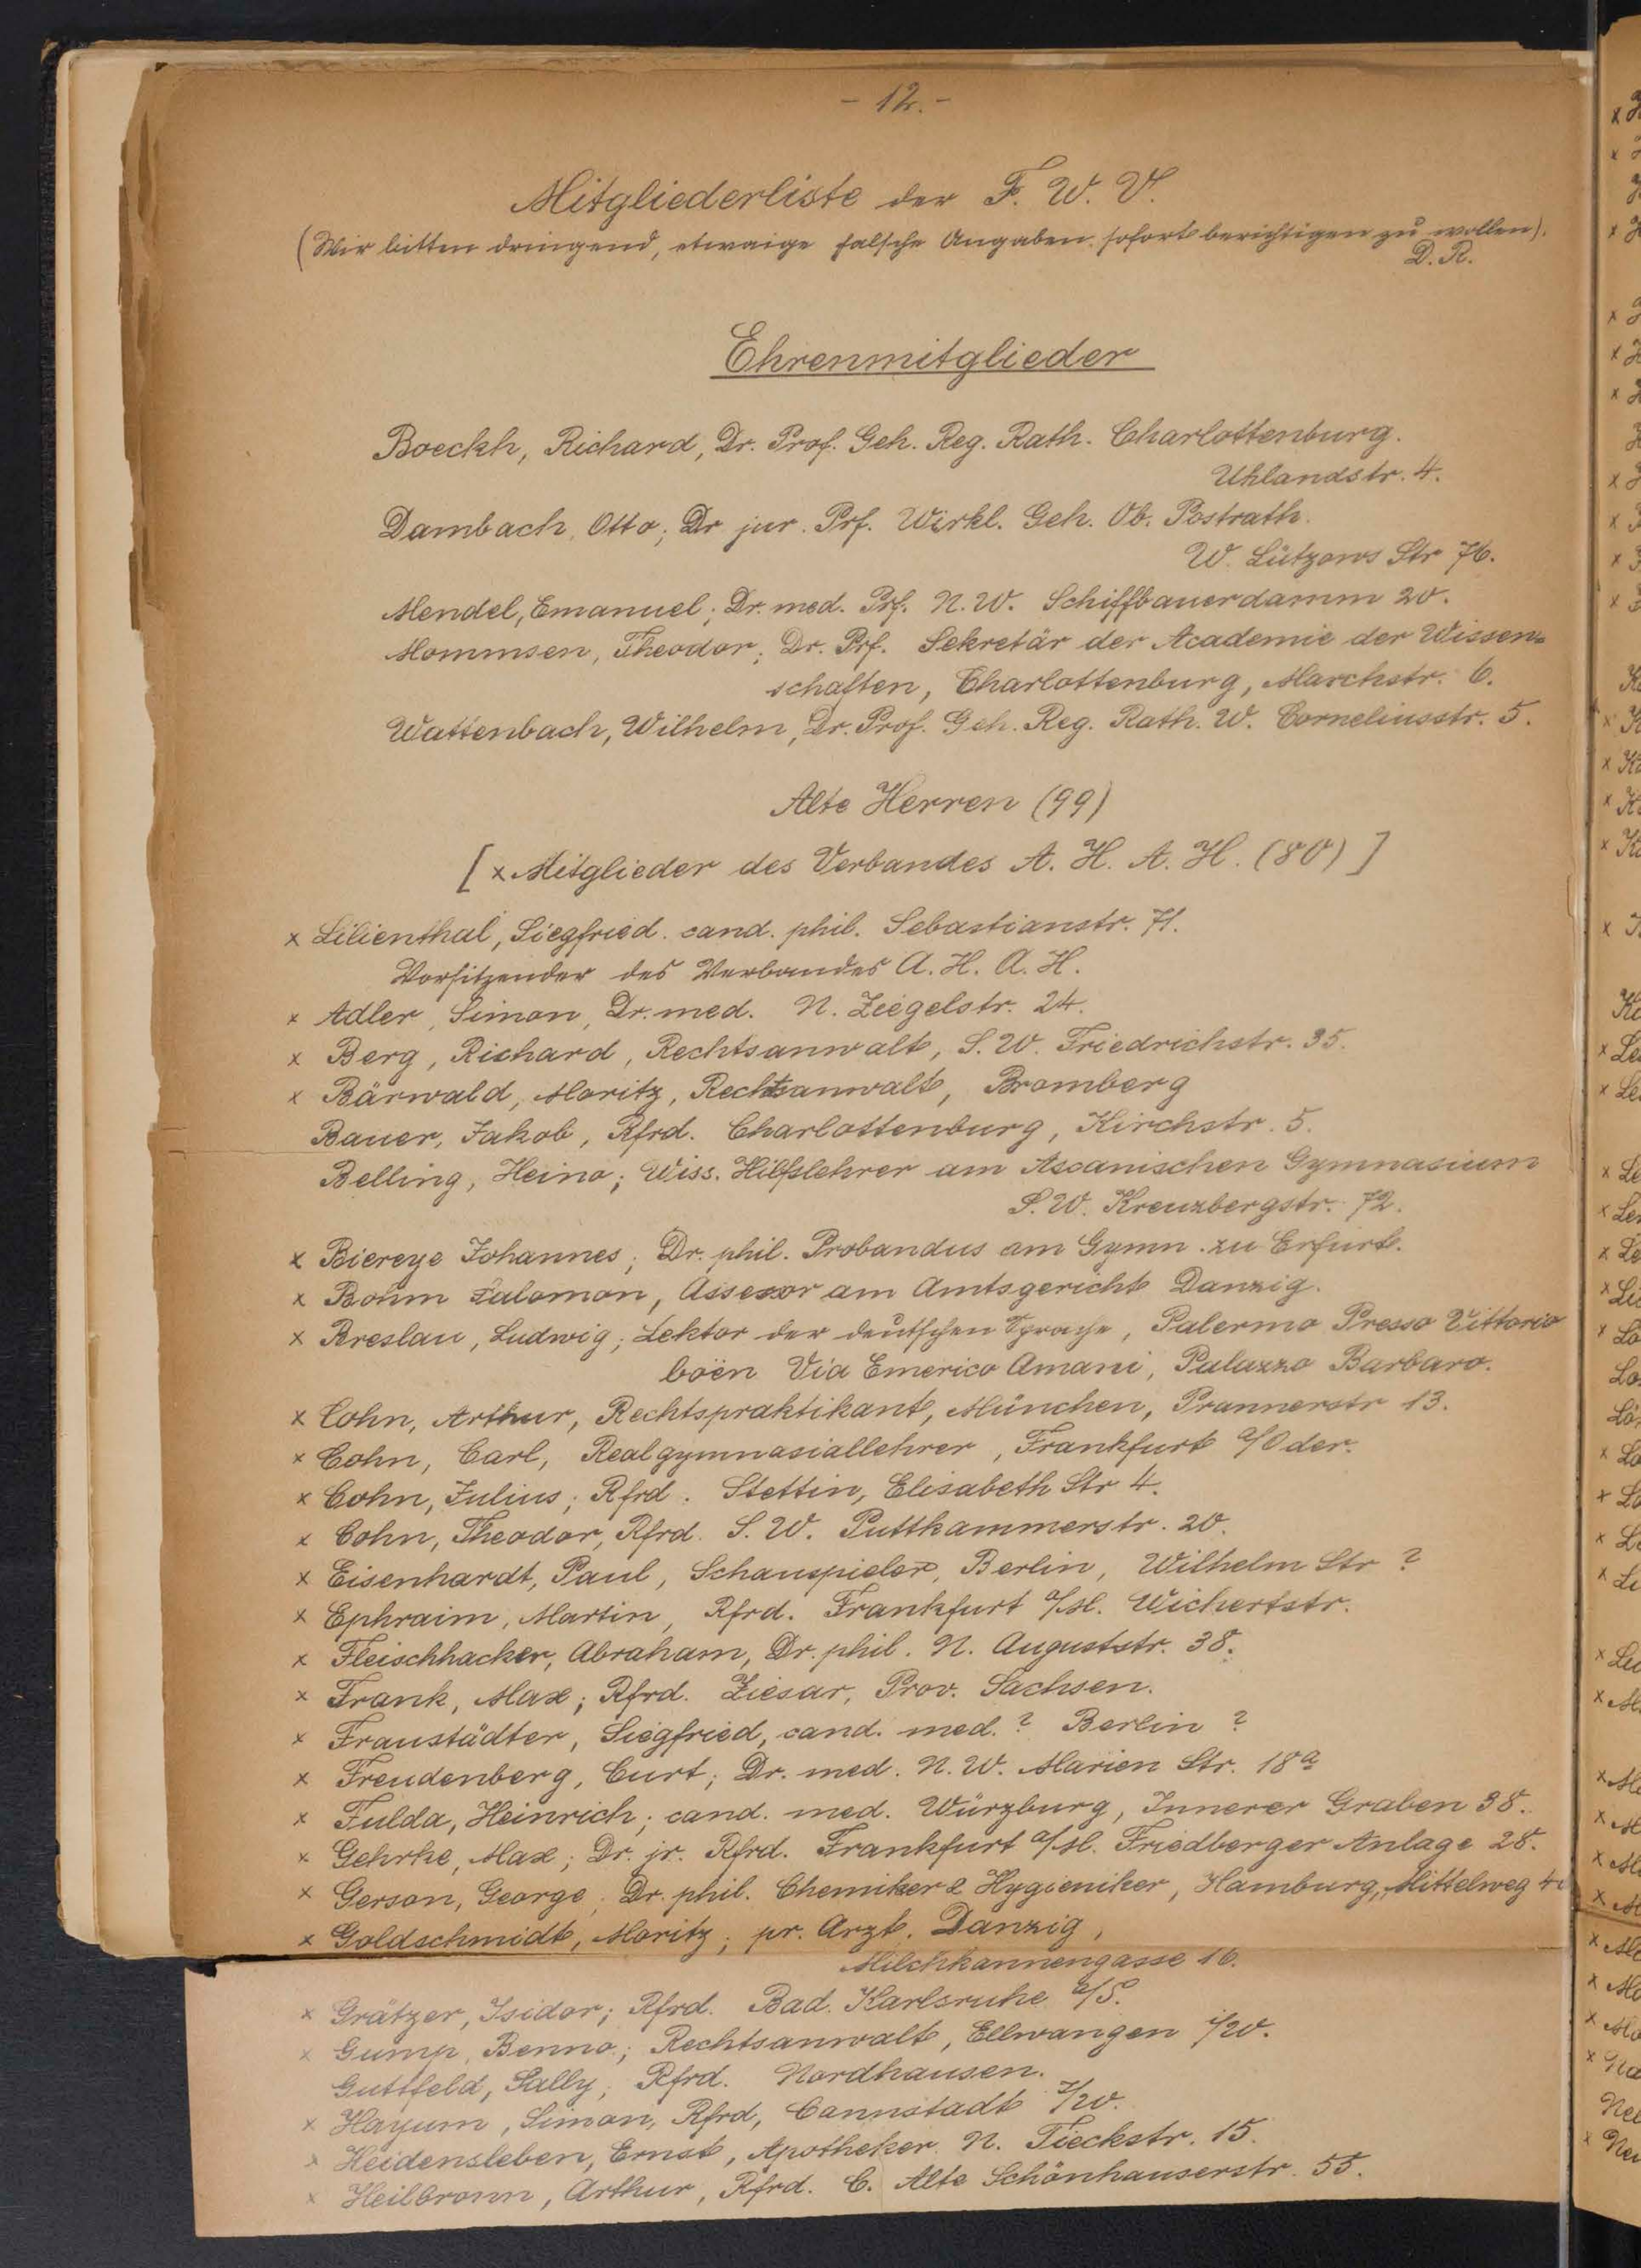 - 12. -
Mitgliederliste der F. W. V.
(Wir bitten dringend, etwaige falsche Angaben sofort berichtigen zu wollen).
D. R.
Ehrenmitglieder
Boeckh, Richard, Dr. Prof. Geh. Reg. Rath. Charlottenburg.
Uhlandstr. 4.
Dambach, Otto; Dr jur. Prf. Wirkl. Geh. Ob. Postrath.
W. Lützows Str 76.
Mendel, Emanuel; Dr. med. Prf. N. W. Schiffbauerdamm 20.
Mommsen, Theodor; Dr. Prf. Sekretär der Academie der Wissen=
schaften, Charlottenburg, Marchstr. 6.
Wattenbach, Wilhelm, Dr. Prof. Geh. Reg. Rath. W. Corneliusstr. 5.
Alte Herren (99)
[ x Mitglieder des Verbandes A. H. A. H. (80) ]
x Lilienthal, Siegfried. cand. phil. Sebastianstr. 71.
Vorsitzender des Verbandes A. H. A. H.
x Adler, Simon, Dr. med. N. Ziegelstr. 24.
x Berg, Richard, Rechtsanwalt, S. W. Friedrichstr. 35.
x Bärwald, Moritz, Rechtsanwalt, Bromberg
Bauer, Jakob, Rfrd. Charlottenburg, Kirchstr. 5.
Belling, Heino; Wiss. Hilfslehrer am Ascanischen Gymnasium
S. W. Kreuzbergstr. 72.
x Biereye Johannes; Dr. phil. Probandus am Gymn. zu Erfurt.
x Bohm Salomon, Assessor am Amtsgericht Danzig.
x Breslau, Ludwig; Lektor der deutschen Sprache, Palermo Presso Vittorio
boën Via Emerico Amari, Palazzo Barbaro.
x Cohn, Arthur, Rechtspraktikant, München, Prannerstr 13.
x Cohn, Carl, Realgymnasiallehrer, Frankfurt a/Oder.
x Cohn, Julius; Rfrd. Stettin, Elisabeth Str 4.
x Cohn, Theodor, Rfrd. S. W. Puttkammerstr. 20.
x Eisenhardt, Paul, Schauspieler, Berlin, Wilhelm Str ?
x Ephraim, Martin, Rfrd. Frankfurt a/M. Wichertstr.
x Fleischhacker, Abraham, Dr. phil. N. Auguststr. 38.
x Frank, Max; Rfrd. Ziesar, Prov. Sachsen.
x Fraustädter, Siegfried, cand. med. ? Berlin ?
x Freudenberg, Curt; Dr. med. N. W. Marien Str. 18a
x Fulda, Heinrich; cand. med. Würzburg, Innerer Graben 38.
x Gehrke, Max; Dr. jr. Rfrd. Frankfurt a/M. Friedberger Anlage 28.
x Gerson, George, Dr. phil. Chemiker & Hygieniker, Hamburg, Mittelweg
x Goldschmidt, Moritz; pr. Arzt. Danzig,
Milchkannengasse 16.
x Grätzer, Isidor; Rfrd. Bad. Karlsruhe a/S.
x Gump, Benno; Rechtsanwalt, Ellwangen i/W.
Guttfeld, Sally; Rfrd. Nordhausen.
x Hayum, Simon, Rfrd, Cannstadt i/W.
x Heidensleben, Ernst, Apotheker. N. Tieckstr. 15.
x Heilbronn, Arthur, Rfrd. C. Alte Schönhauserstr. 55.